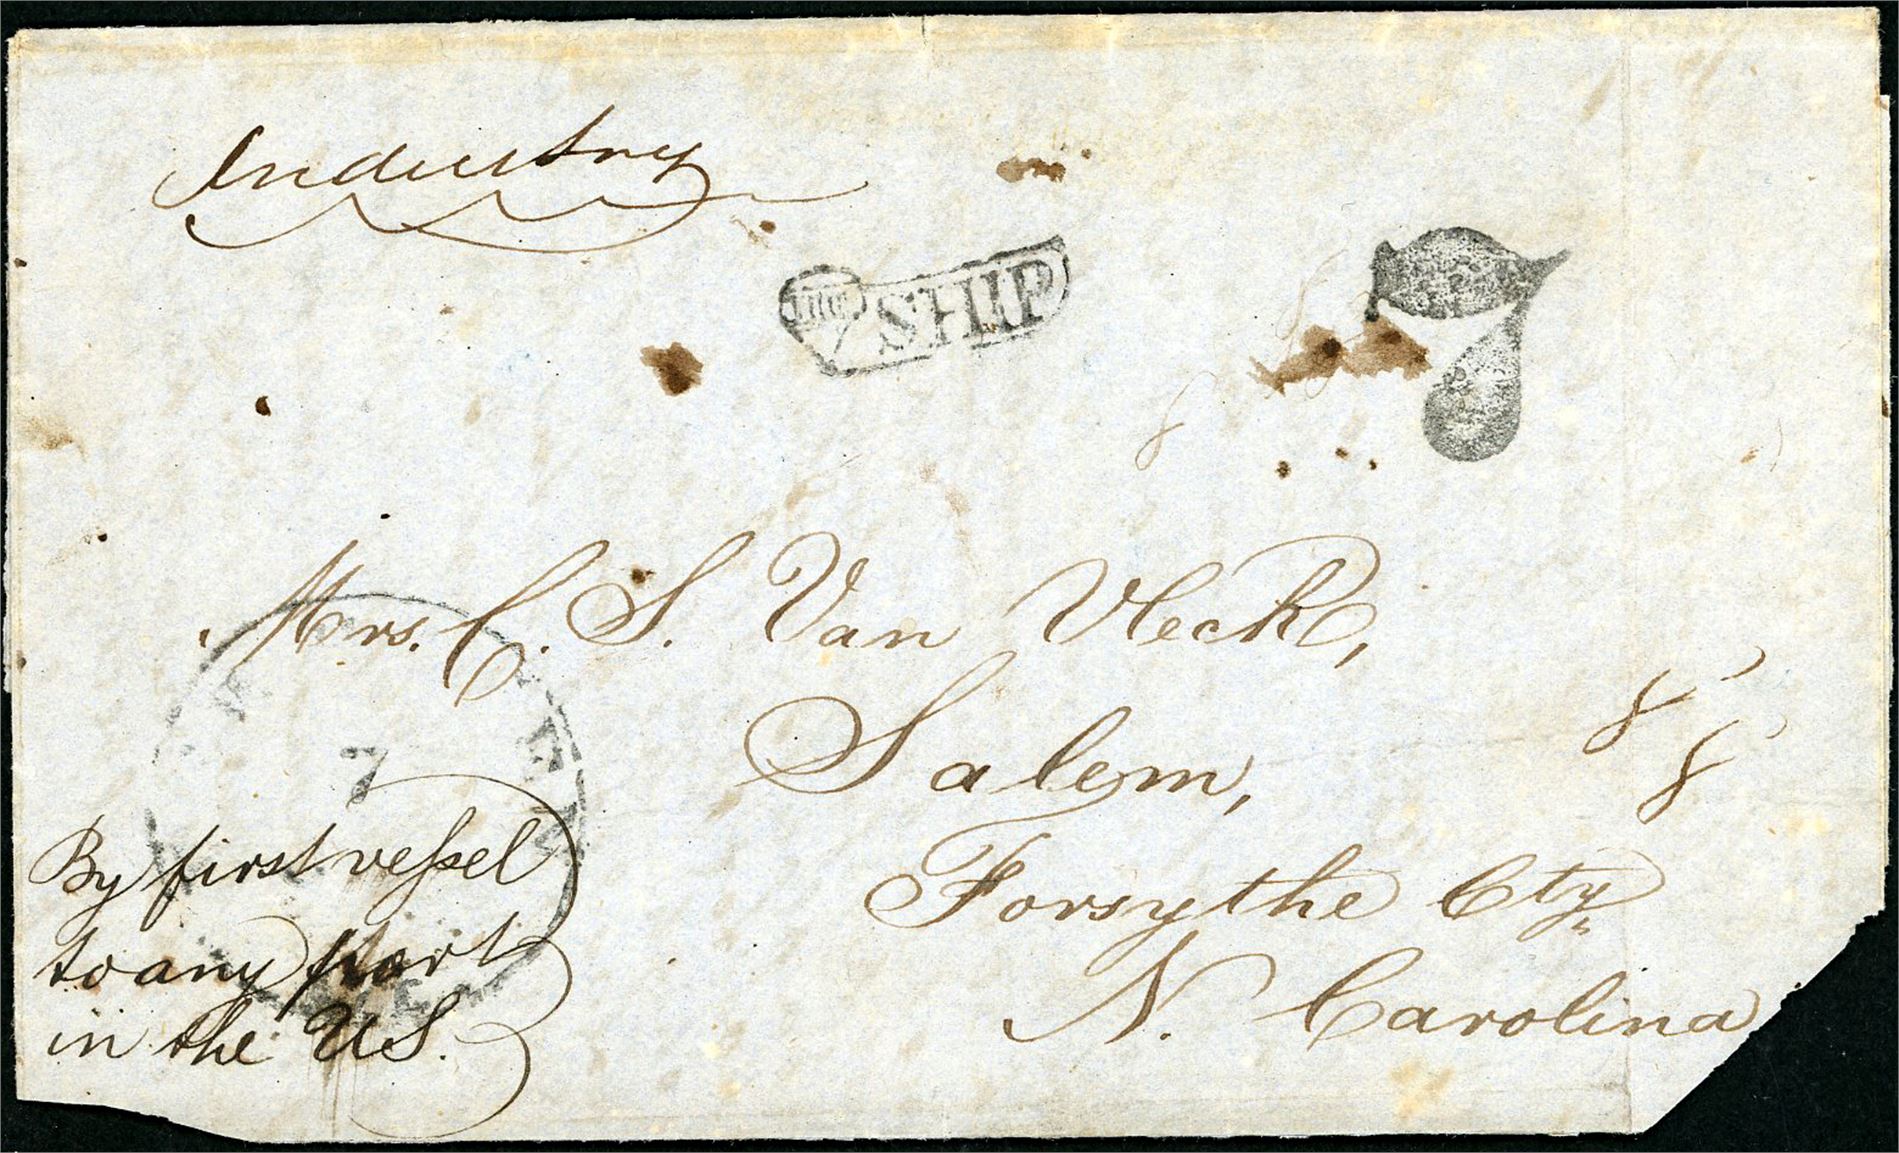 Industry
SHIP
7
Mrs. C. S. Van Vleck,
Salem,
Forsythe Cty
N. Carolina
7
By first vessel
to any port
in the US.